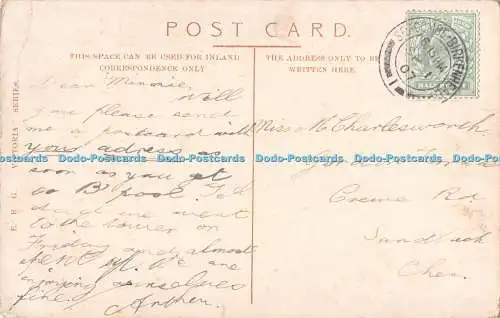 POST CARD.
THIS SPACE CAN BE USED FOR INLAND
CORRESPONDENCE ONLY
THE ADDRESS ONLY TO BE
WRITTEN HERE.
Dear Minnie, Will
you please send
me a postcard with
your address as
soon as you get
to B'pool. Ted
and me went
to the tower on
Friday and almost
We are
enjoying ourselves
fine. Arthur.
Miss M. Charlesworth
Crewe Rd
Sandbach
Ches.
E. R. G. VICTORIA SERIES.
Dodo-Postcards Dodo-Postcards Dodo-Postcards Dodo-Postcards Dodo-Postcards
Dodo-Postcards Dodo-Postcards Dodo-Postcards Dodo-Postcards Dodo-Postcards